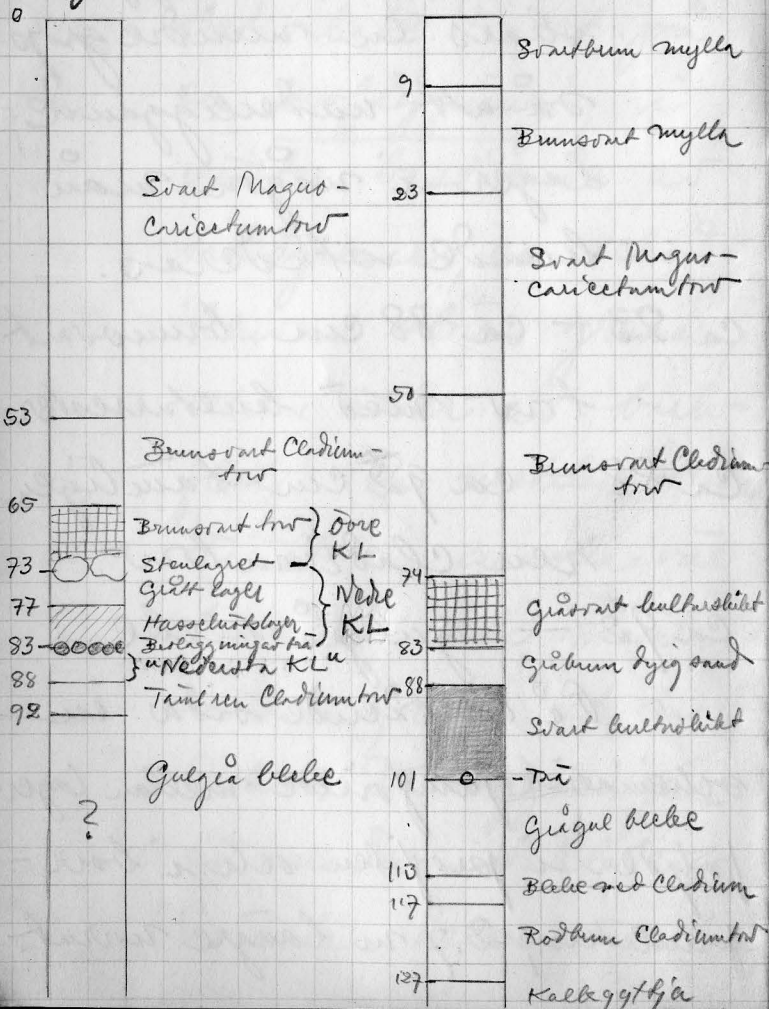 0
Svart Magno-
caricetumtorv
53
Brunsvart Cladium-
torv
65
Brunsvart torv
Övre
KL
73
Stenlagret
Grått lager
77
Hasselnötslager
Nedre
KL
83
Beläggning av trä
"Nedersta KL"
88
Täml ren Cladiumtorv
92
Gulgrå bleke
?
Svartbrun mylla
9
Brunsvart mylla
23
Svart Magno-
caricetumtorv
50
Brunsvart Cladium-
torv
74
Gråsvart kulturskikt
83
Gråbrun dyig sand
88
Svart kulturskikt
101
- Trä
Grågul bleke
113
Bleke med Cladium
117
Rödbrun Cladiumtorv
127
Kalkgyttja